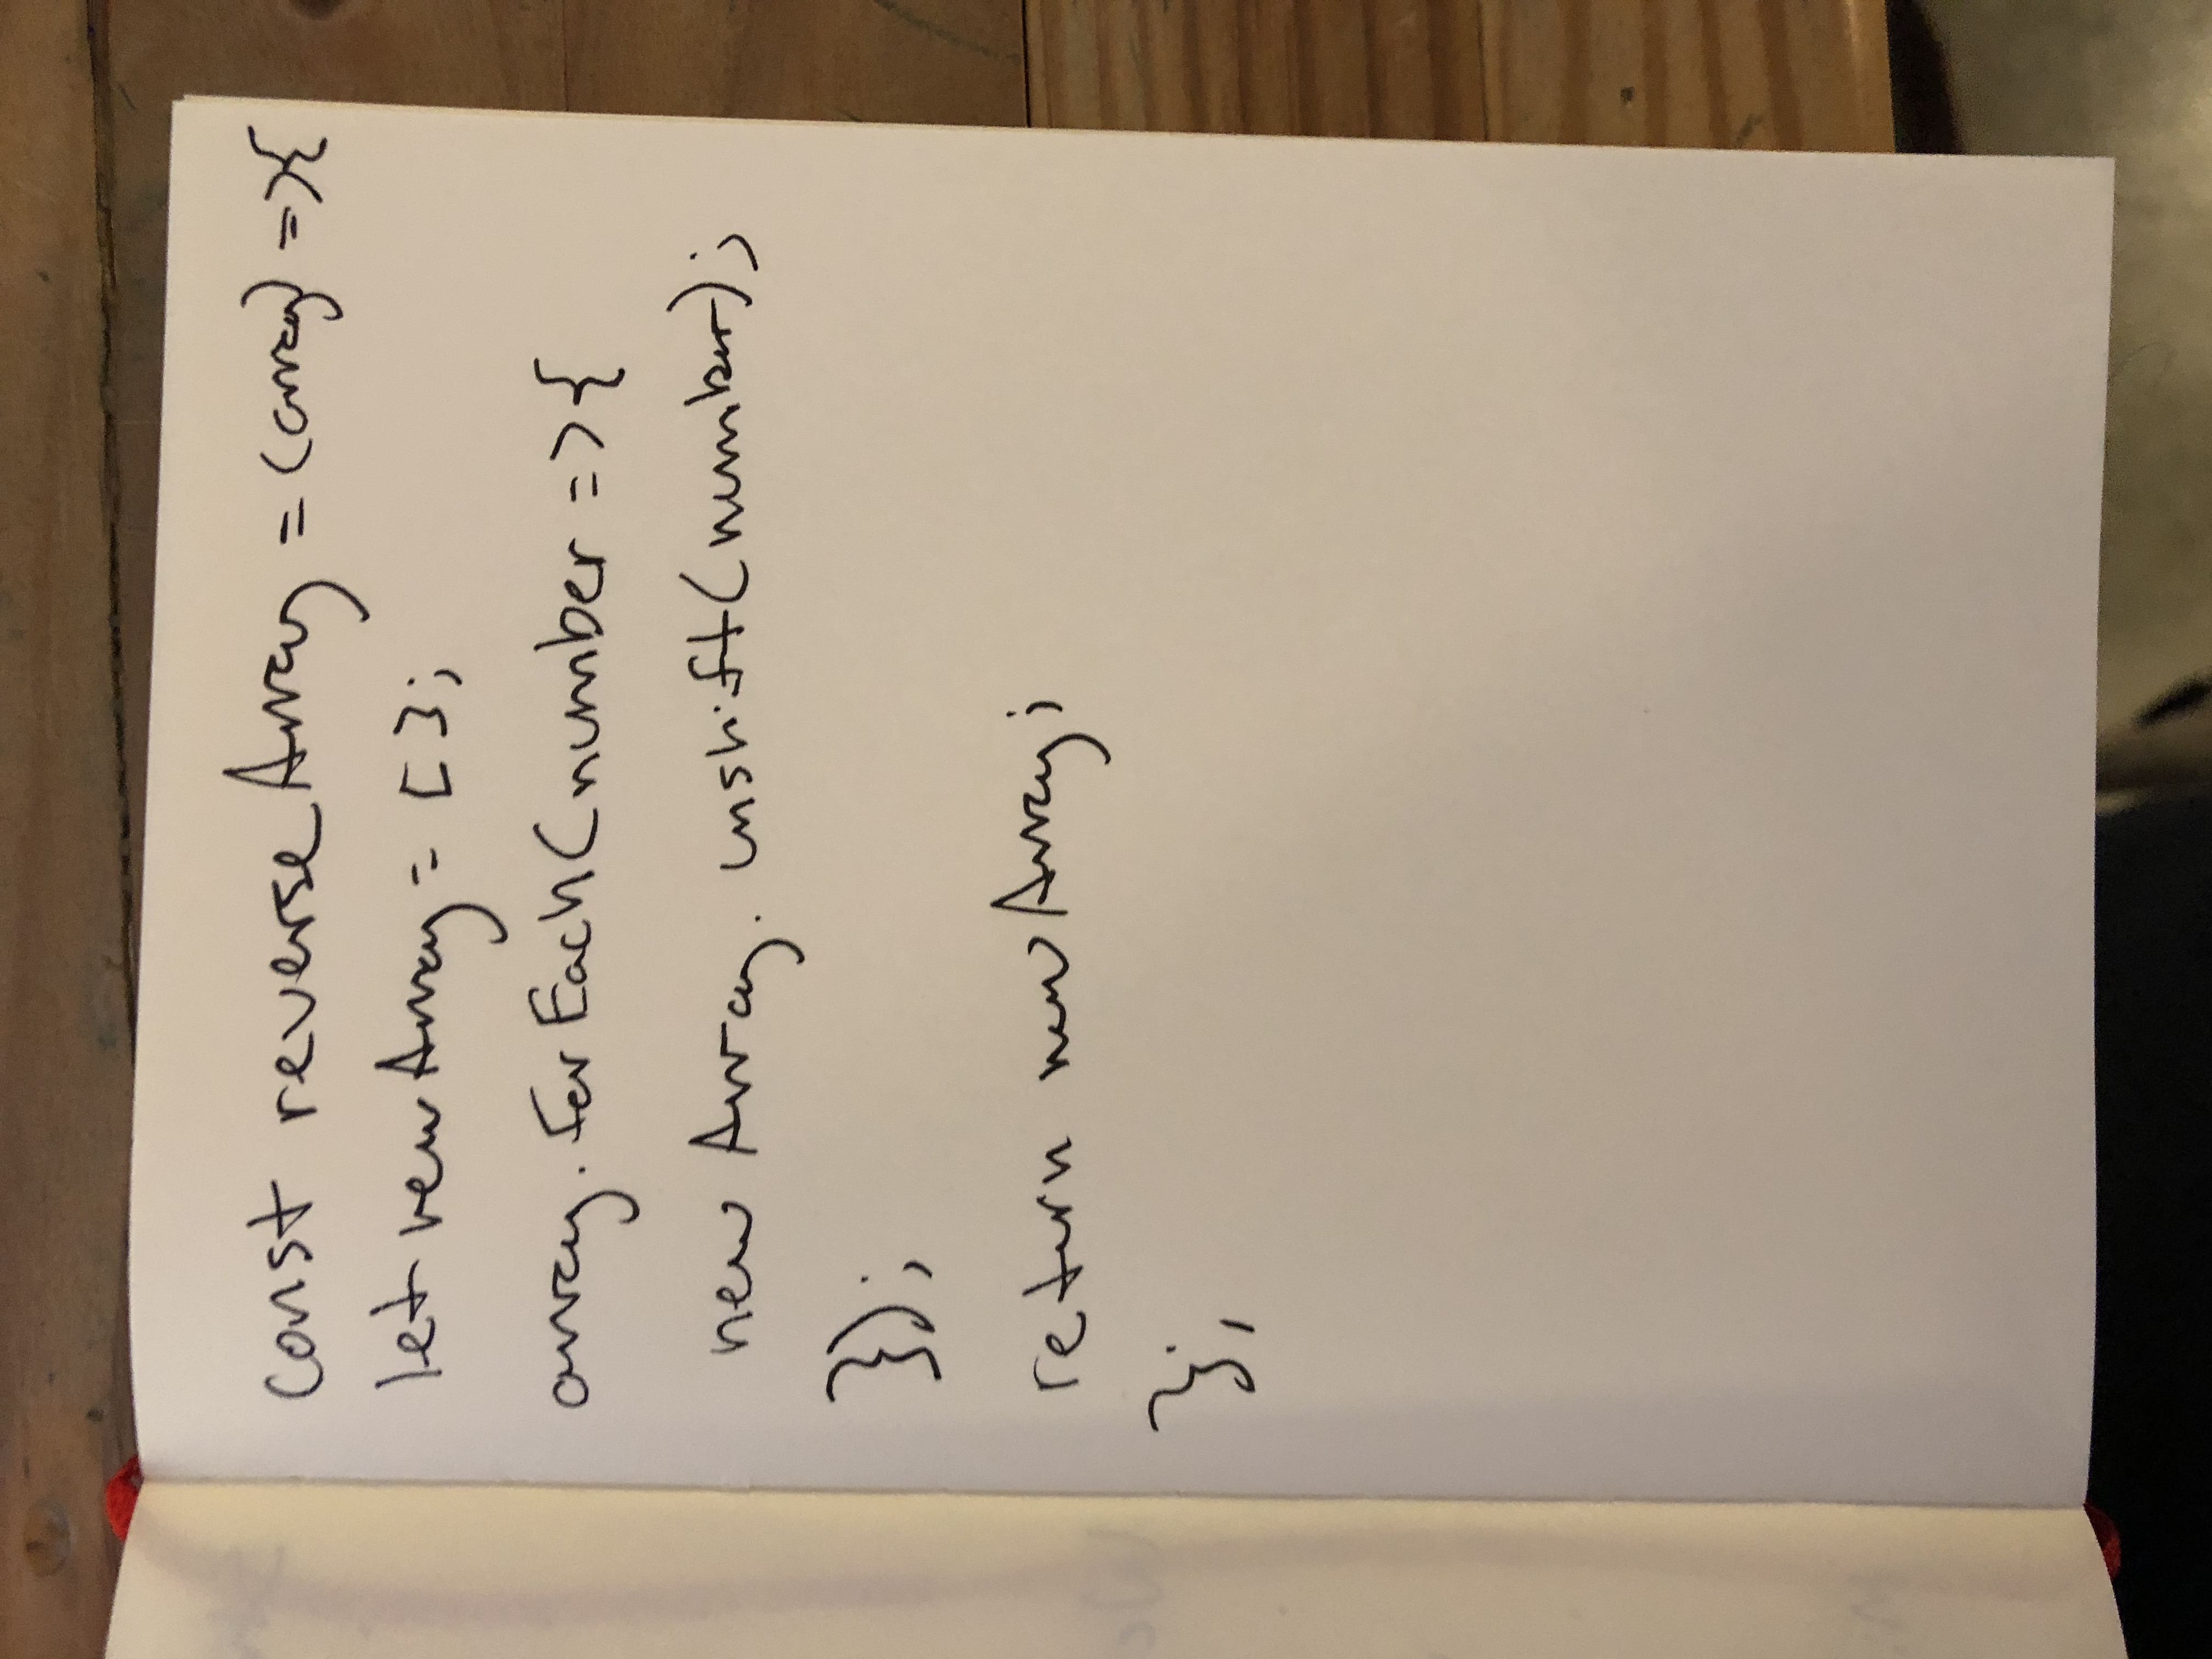 const reverseArray = (array) => {
let newArray = [];
array.forEach(number => {
newArray.unshift(number);
});
return newArray;
};